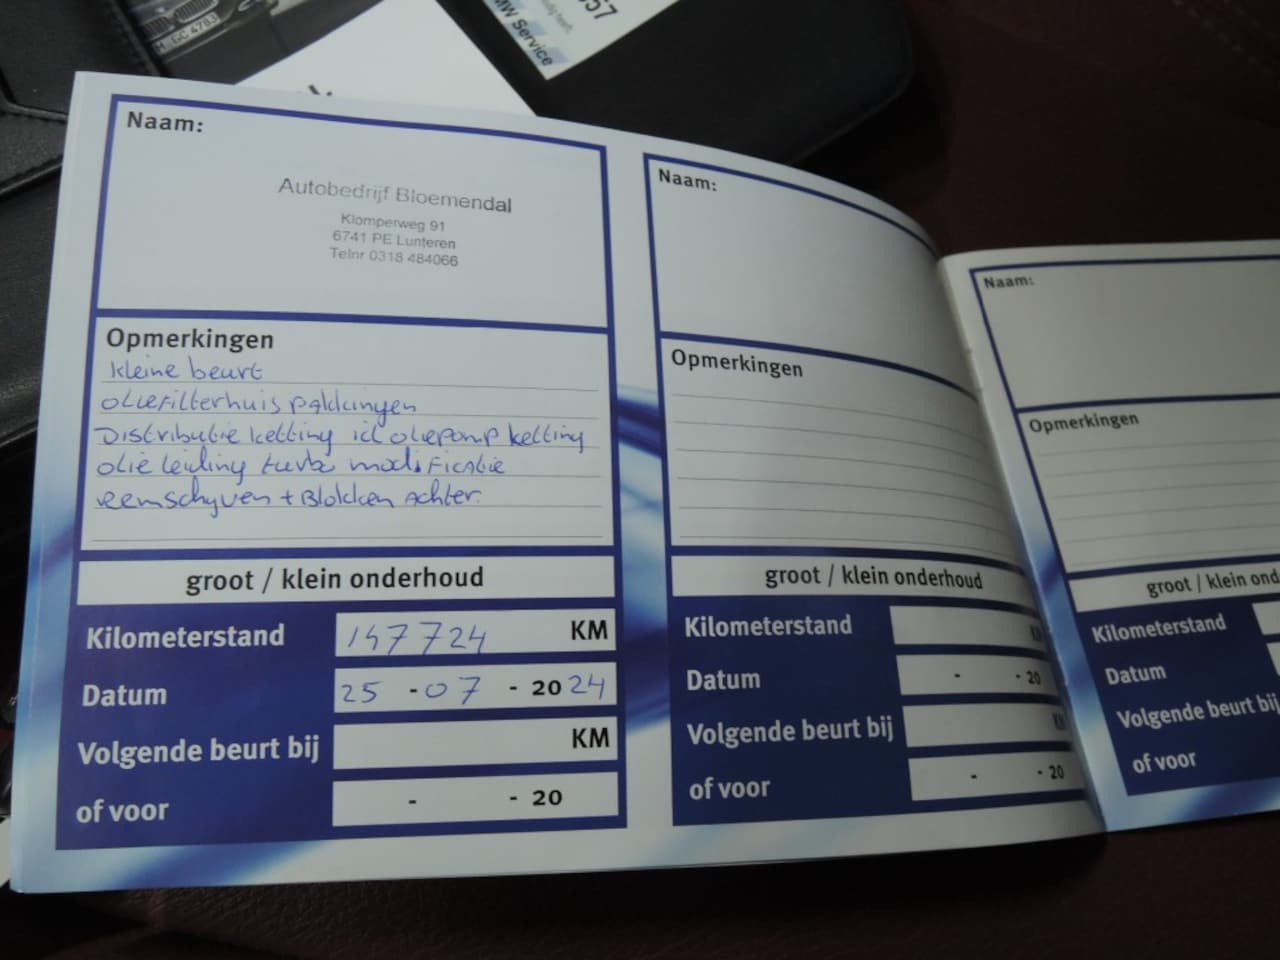 M GC 4783
MW Service
557
Naam:
Autobedrijf Bloemendal
Klomperweg 91
6741 PE Lunteren
Telnr 0318 484066
Opmerkingen
kleine beurt
oliefilterhuis pakkingen
Distributie ketting icl oliepomp ketting
olie leiding turbo modificatie
remschyven + Blokken Achter.
groot / klein onderhoud
Kilometerstand 147724 KM
Datum 25 - 07 - 20 24
Volgende beurt bij KM
of voor - - 20
Naam:
Opmerkingen
groot / klein onderhoud
Kilometerstand
Datum - - 20
Volgende beurt bij
of voor - - 20
Naam:
Opmerkingen
groot / klein ond
Kilometerstand
Datum
Volgende beurt bij
of voor